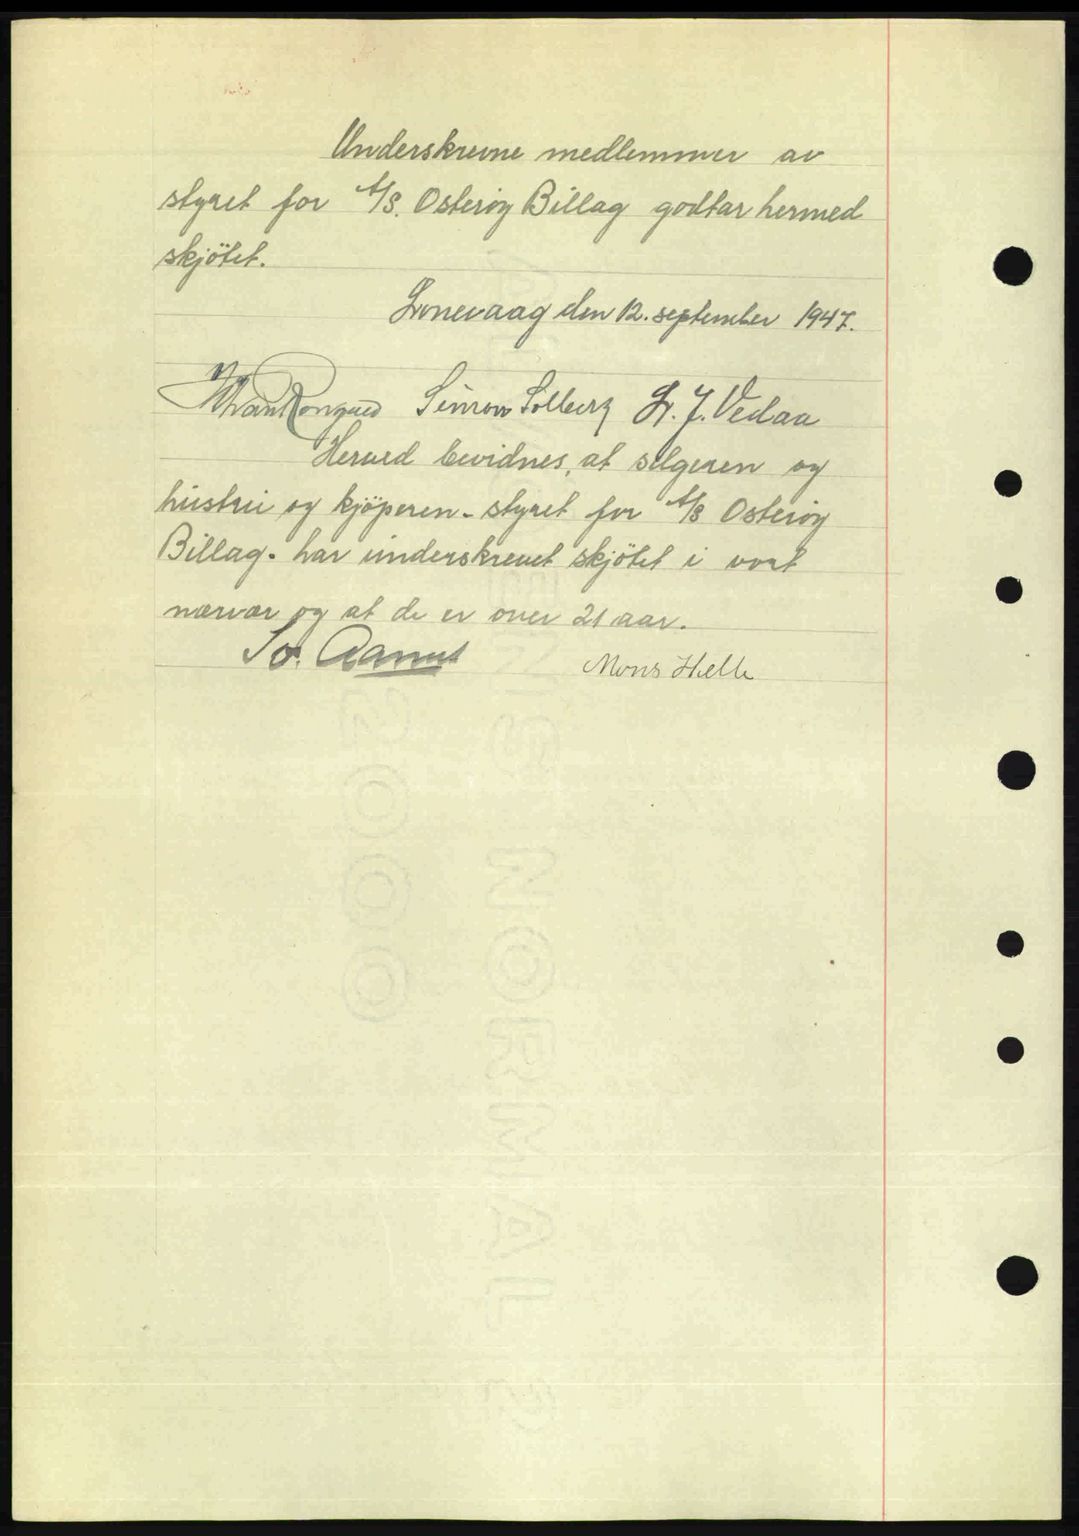 Underskrevne medlemmer av
styret for A/S. Osterøy Billag godtar hermed
skjötet.
Lonevaag den 12. september 1947.
Simon Solberg L. J. Vedaa
Herved bevidnes, at selgeren og
hustru og kjöperen - styret for A/S Osterøy
Billag - har underskrevet skjötet i vort
nærvær og at de er over 21 aar.
Mons Helle
NORMAL 2
2000